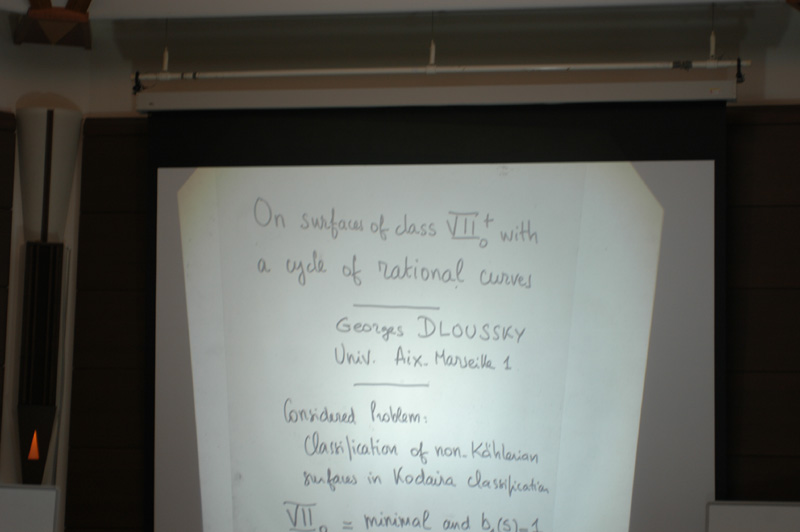 On surfaces of class VII₀⁺ with
a cycle of rational curves
Georges DLOUSSKY
Univ. Aix-Marseille 1
Considered Problem:
Classification of non-Kählerian
surfaces in Kodaira classification
VII₀ = minimal and b₁(S)=1